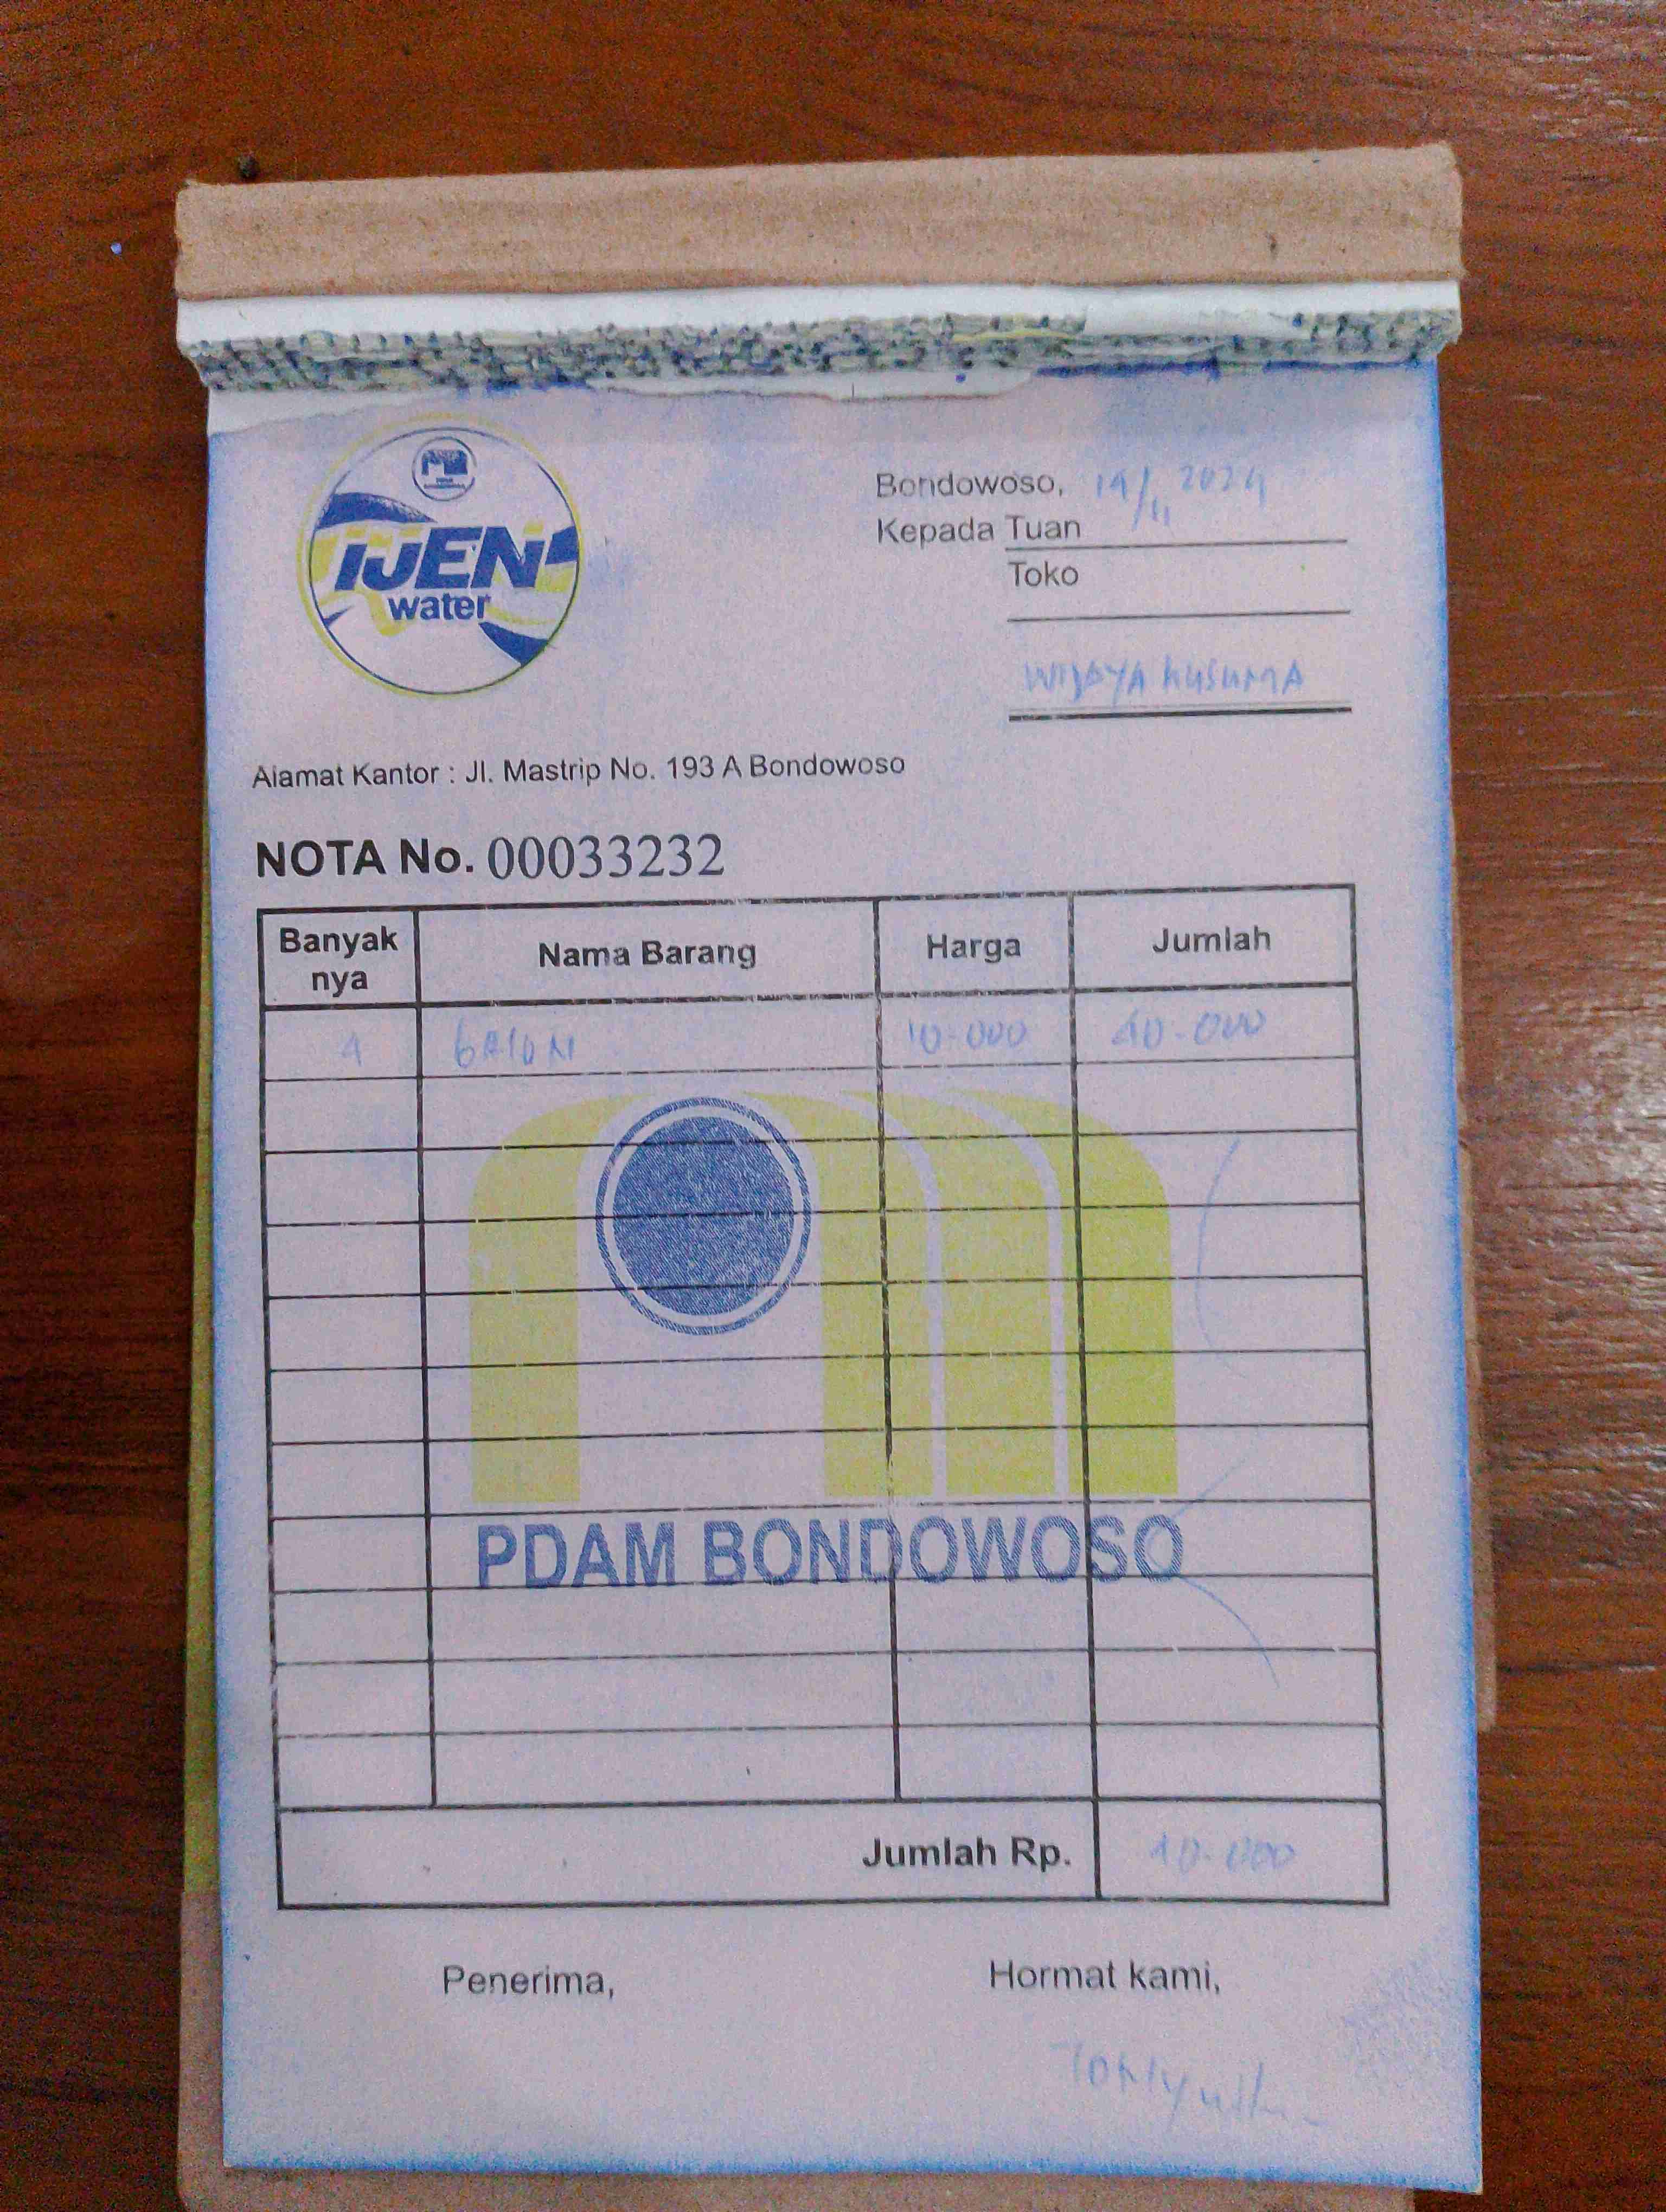 IJEN
water
Bondowoso, 14/11 2024
Kepada Tuan
Toko
WIJAYA KUSUMA
Alamat Kantor : Jl. Mastrip No. 193 A Bondowoso
NOTA No. 00033232
Banyak
nya
Nama Barang
Harga
Jumlah
4 GALON 10.000 40.000
PDAM BONDOWOSO
Jumlah Rp. 40.000
Penerima,
Hormat kami,